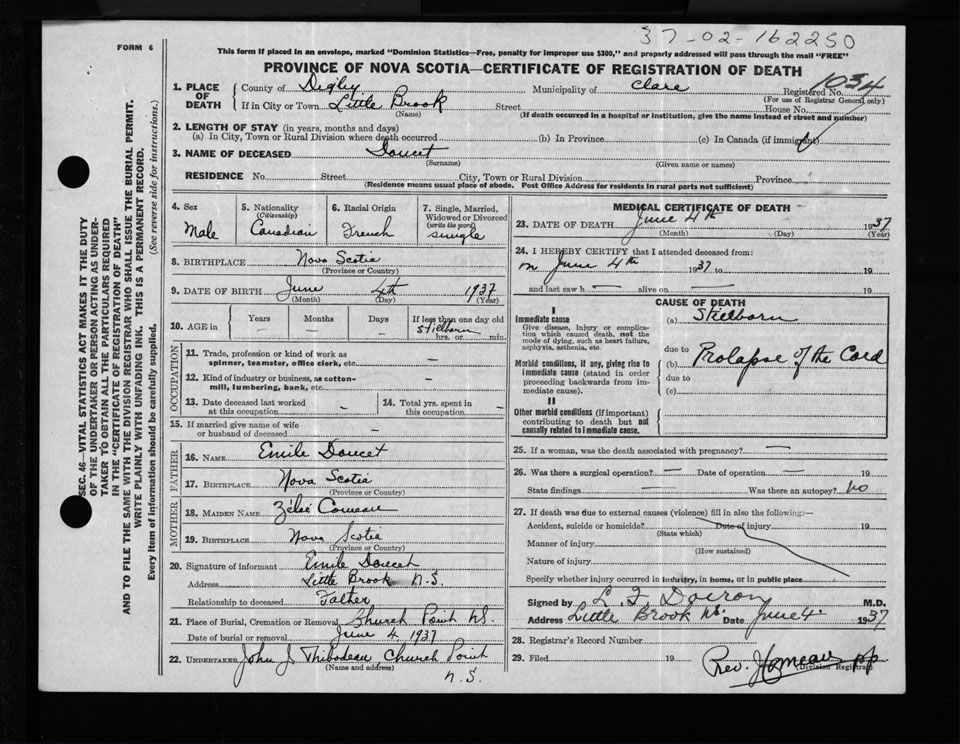 37-02-162250
FORM 6
This form if placed in an envelope, marked "Dominion Statistics—Free, penalty for improper use $300," and properly addressed will pass through the mail "FREE"
PROVINCE OF NOVA SCOTIA—CERTIFICATE OF REGISTRATION OF DEATH
1. PLACE OF DEATH
County of Digby Municipality of Clare Registered No. 1034
(For use of Registrar General only)
If in City or Town Little Brook Street House No.
(Name) (If death occurred in a hospital or institution, give the name instead of street and number)
2. LENGTH OF STAY (in years, months and days)
(a) In City, Town or Rural Division where death occurred (b) In Province (c) In Canada (if immigrant)
3. NAME OF DECEASED Doucet
(Surname) (Given name or names)
RESIDENCE No. Street City, Town or Rural Division Province
(Residence means usual place of abode. Post Office Address for residents in rural parts not sufficient)
4. Sex Male
5. Nationality (Citizenship) Canadian
6. Racial Origin French
7. Single, Married, Widowed or Divorced (write the word) single
8. BIRTHPLACE Nova Scotia
(Province or Country)
9. DATE OF BIRTH June 4th 1937
(Month) (Day) (Year)
10. AGE in Years Months Days If less than one day old
– – – Stielborn
hrs. or min.
OCCUPATION
11. Trade, profession or kind of work as spinner, teamster, office clerk, etc. –
12. Kind of industry or business, as cotton-mill, lumbering, bank, etc. –
13. Date deceased last worked at this occupation –
14. Total yrs. spent in this occupation –
15. If married give name of wife or husband of deceased –
FATHER
16. NAME Emile Doucet
17. BIRTHPLACE Nova Scotia
(Province or Country)
MOTHER
18. MAIDEN NAME Zélié Comeau
19. BIRTHPLACE Nova Scotia
(Province or Country)
20. Signature of informant Emile Doucet
Address Little Brook N.S.
Relationship to deceased Father
21. Place of Burial, Cremation or Removal Church Point N.S.
Date of burial or removal June 4, 1937
22. UNDERTAKER John J Thibodeau, Church Point
(Name and address) N.S.
MEDICAL CERTIFICATE OF DEATH
23. DATE OF DEATH June 4th 1937
(Month) (Day) (Year)
24. I HEREBY CERTIFY that I attended deceased from:
on June 4th 1937 to 19
and last saw h – alive on – 19
CAUSE OF DEATH
I
Immediate cause
Give disease, injury or complication which caused death, not the mode of dying, such as heart failure, asphyxia, asthenia, etc.
(a) Stielborn
due to
Morbid conditions, if any, giving rise to immediate cause (stated in order proceeding backwards from immediate cause).
(b) Prolapse of the Cord
due to
(c)
II
Other morbid conditions (if important) contributing to death but not causally related to immediate cause.
25. If a woman, was the death associated with pregnancy? –
26. Was there a surgical operation? – Date of operation – 19
State findings – Was there an autopsy? no
27. If death was due to external causes (violence) fill in also the following:—
Accident, suicide or homicide? Date of injury 19
(State which)
Manner of injury
(How sustained)
Nature of injury
Specify whether injury occurred in industry, in home, or in public place
Signed by L. F. Doiron M.D.
Address Little Brook N.S. Date June 4 1937
28. Registrar's Record Number
29. Filed 19 Rev. pp
(Division Registrar)
SEC. 46—VITAL STATISTICS ACT MAKES IT THE DUTY
OF THE UNDERTAKER OR PERSON ACTING AS UNDER-
TAKER TO OBTAIN ALL THE PARTICULARS REQUIRED
IN THE "CERTIFICATE OF REGISTRATION OF DEATH"
AND TO FILE THE SAME WITH THE DIVISION REGISTRAR WHO SHALL ISSUE THE BURIAL PERMIT.
WRITE PLAINLY WITH UNFADING INK. THIS IS A PERMANENT RECORD.
Every item of information should be carefully supplied. (See reverse side for instructions.)